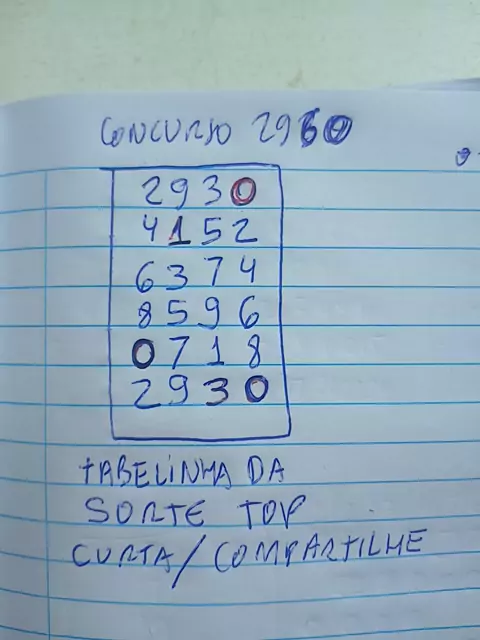 CONCURSO 2960
2930
4152
6374
8596
0718
2930
TABELINHA DA
SORTE TOP
CURTA/COMPARTILHE